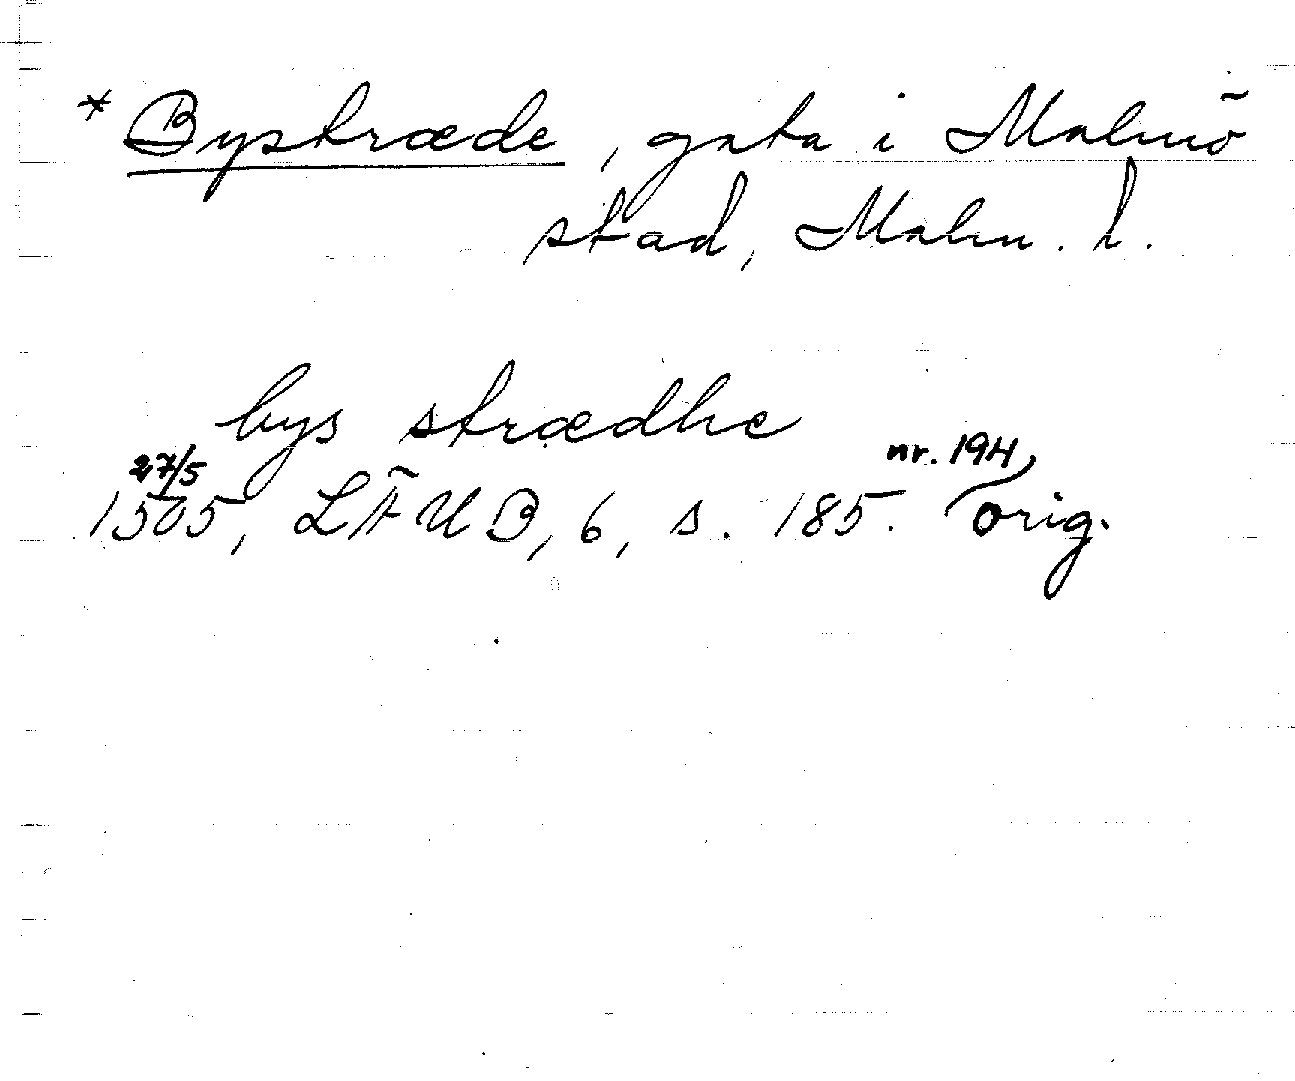 * Bystræde, gata i Malmö
stad, Malm. l.
bys strædhe
27/5 nr. 194
1505, LÄUB, 6, s. 185. orig.